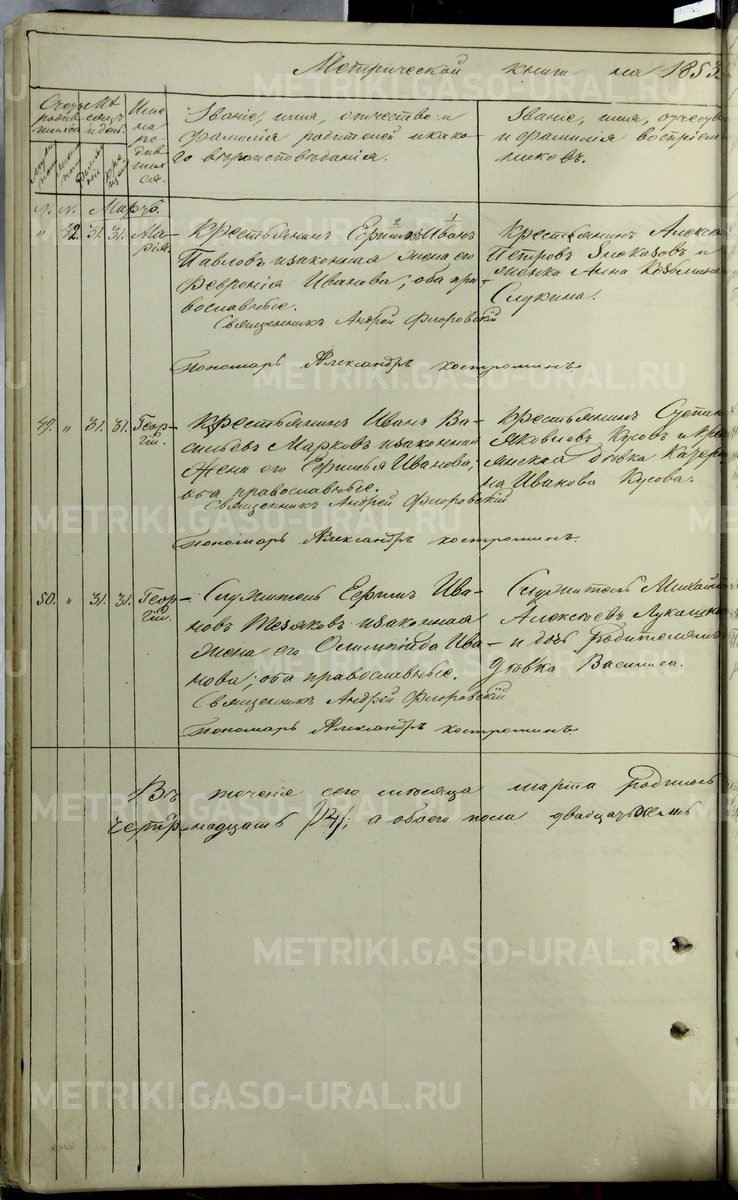 Метрической книги на 1853
Счетъ родив-шихся
Мѣсяцъ и день.
Имена родив-шихся.
Званіе, имя, отчество и фамилія родителей и како-го вѣроисповѣданія.
Званіе, имя, отчество и фамилія воспріем-никовъ.
М. М. Мартъ.
" 42. 31. 31. Ма-рія.
Крестьянинъ Иванъ
Павловъ и законная жена его
Февронія Иванова; оба пра-
вославные.
Священникъ Андрей Флоровскій
Пономарь Александръ Костроминъ.
Крестьянинъ
Петровъ и
женка Анна
49. " 31. 31. Геор-гій.
Крестьянинъ Иванъ Ва-
сильевъ Марковъ и законная
жена его Иванова;
оба православные.
Священникъ Андрей Флоровскій
Пономарь Александръ Костроминъ.
Крестьянинъ
Яковлевъ Кусовъ и
дѣвка
на Иванова Кусова.
50. " 31. 31. Геор-гій.
Служитель Ермилъ Ива-
новъ и законная
жена его Олимпіада Ива-
нова; оба православные.
Священникъ Андрей Флоровскій
Пономарь Александръ Костроминъ.
Служитель Михайло
Алексѣевъ
и дочь родителямъ
дѣвка Василиса.
Въ теченіе сего мѣсяца марта родилось
четырнадцать /14/, а обоего пола двадцать
METRIKI.GASO-URAL.RU